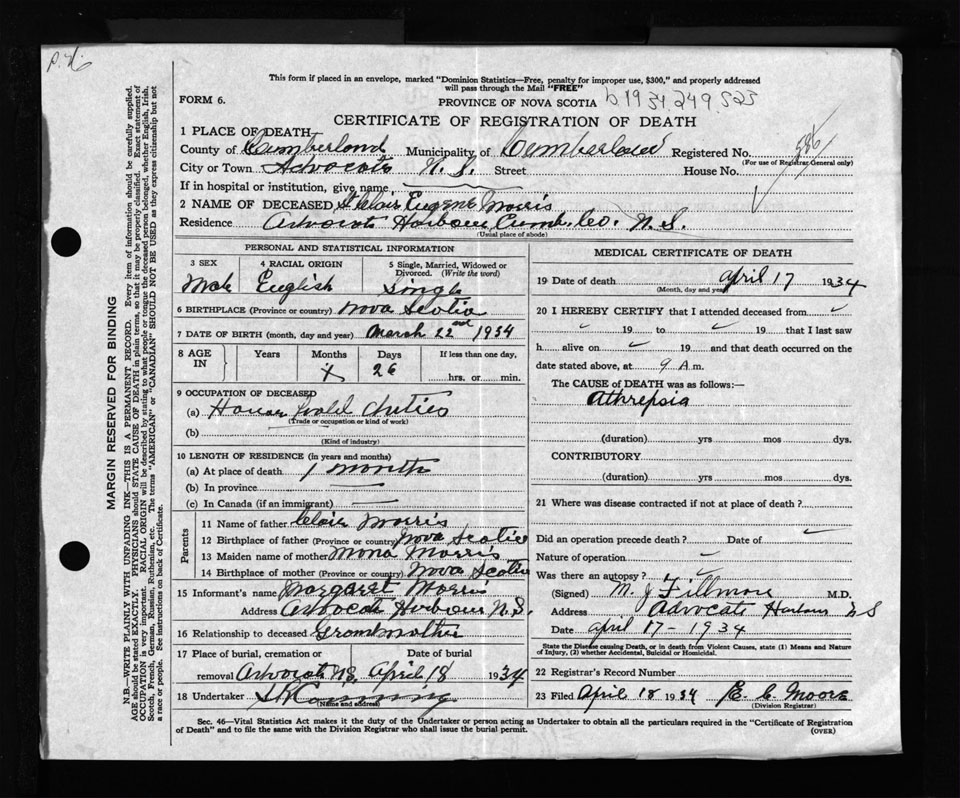 P. H.
This form if placed in an envelope, marked "Dominion Statistics—Free, penalty for improper use, $300," and properly addressed
will pass through the Mail "FREE"
FORM 6.
PROVINCE OF NOVA SCOTIA b 1934 249 523
CERTIFICATE OF REGISTRATION OF DEATH
1 PLACE OF DEATH
County of Cumberland Municipality of Cumberland Registered No. 586
(For use of Registrar General only)
City or Town Advocate N. S. Street House No.
If in hospital or institution, give name
2 NAME OF DECEASED St Clair Eugene Morris
Residence Advocate Harbour Cumb. Co. N. S.
(Usual place of abode)
PERSONAL AND STATISTICAL INFORMATION
3 SEX 4 RACIAL ORIGIN 5 Single, Married, Widowed or Divorced. (Write the word)
Male English Single
6 BIRTHPLACE (Province or country) Nova Scotia
7 DATE OF BIRTH (month, day and year) March 22nd 1934
8 AGE IN Years Months Days If less than one day,
26 hrs. or min.
9 OCCUPATION OF DECEASED
(a) House hold duties
(Trade or occupation or kind of work)
(b)
(Kind of industry)
10 LENGTH OF RESIDENCE (in years and months)
(a) At place of death 1 month
(b) In province
(c) In Canada (if an immigrant)
Parents
11 Name of father Clair Morris
12 Birthplace of father (Province or country) Nova Scotia
13 Maiden name of mother Mona Morris
14 Birthplace of mother (Province or country) Nova Scotia
15 Informant's name Margaret Morris
Address Advocate Harbour N. S.
16 Relationship to deceased Grandmother
17 Place of burial, cremation or removal Date of burial
Advocate N.S. April 18 1934
18 Undertaker
(Name and address)
MEDICAL CERTIFICATE OF DEATH
19 Date of death April 17 1934
(Month, day and year)
20 I HEREBY CERTIFY that I attended deceased from
19 to 19 that I last saw
h alive on 19 and that death occurred on the
date stated above, at 9 A m.
The CAUSE of DEATH was as follows:—
Athrepsia
(duration) yrs mos dys.
CONTRIBUTORY
(duration) yrs mos dys.
21 Where was disease contracted if not at place of death?
Did an operation precede death? Date of
Nature of operation
Was there an autopsy?
(Signed) M. J Fillmore M.D.
Address Advocate Harbour N S
Date April 17 - 1934
State the Disease causing Death, or in death from Violent Causes, state (1) Means and Nature
of Injury, (2) whether Accidental, Suicidal or Homicidal.
22 Registrar's Record Number
23 Filed April 18 1934 E. C. Moore
(Division Registrar)
Sec. 46—Vital Statistics Act makes it the duty of the Undertaker or person acting as Undertaker to obtain all the particulars required in the "Certificate of Registration
of Death" and to file the same with the Division Registrar who shall issue the burial permit. (OVER)
MARGIN RESERVED FOR BINDING
N.B.—WRITE PLAINLY WITH UNFADING INK—THIS IS A PERMANENT RECORD. Every item of information should be carefully supplied.
AGE should be stated EXACTLY. PHYSICIANS should STATE CAUSE OF DEATH in plain terms, so that it may be properly classified. Exact statement of
OCCUPATION is very important. RACIAL ORIGIN will be described by stating to what people or tongue the deceased person belonged, whether English, Irish,
Scotch, French, German, Russian, Ruthenian, etc. The terms "AMERICAN" or "CANADIAN" SHOULD NOT BE USED as they express citizenship but not
a race or people. See instructions on back of Certificate.